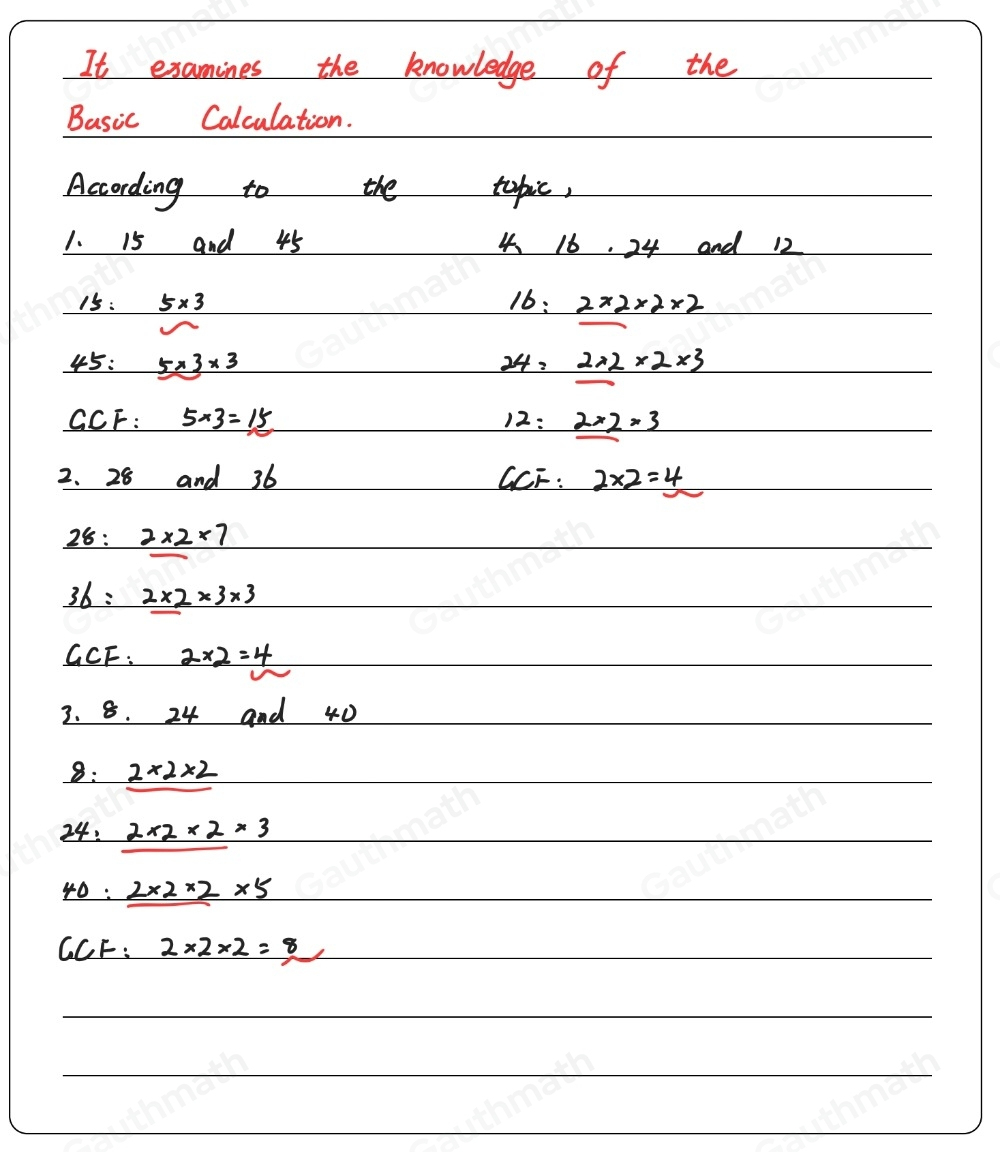 It examines the knowledge of the
Basic Calculation.
According to the topic,
1. 15 and 45
15: 5×3
45: 5×3×3
GCF: 5×3=15
2、28 and 36
28: 2×2×7
36: 2×2×3×3
GCF: 2×2=4
3. 8. 24 and 40
8: 2×2×2
24: 2×2×2×3
40: 2×2×2×5
GCF: 2×2×2=8
4、16.24 and 12
16: 2×2×2×2
24: 2×2×2×3
12: 2×2×3
GCF: 2×2=4
Gauthmath